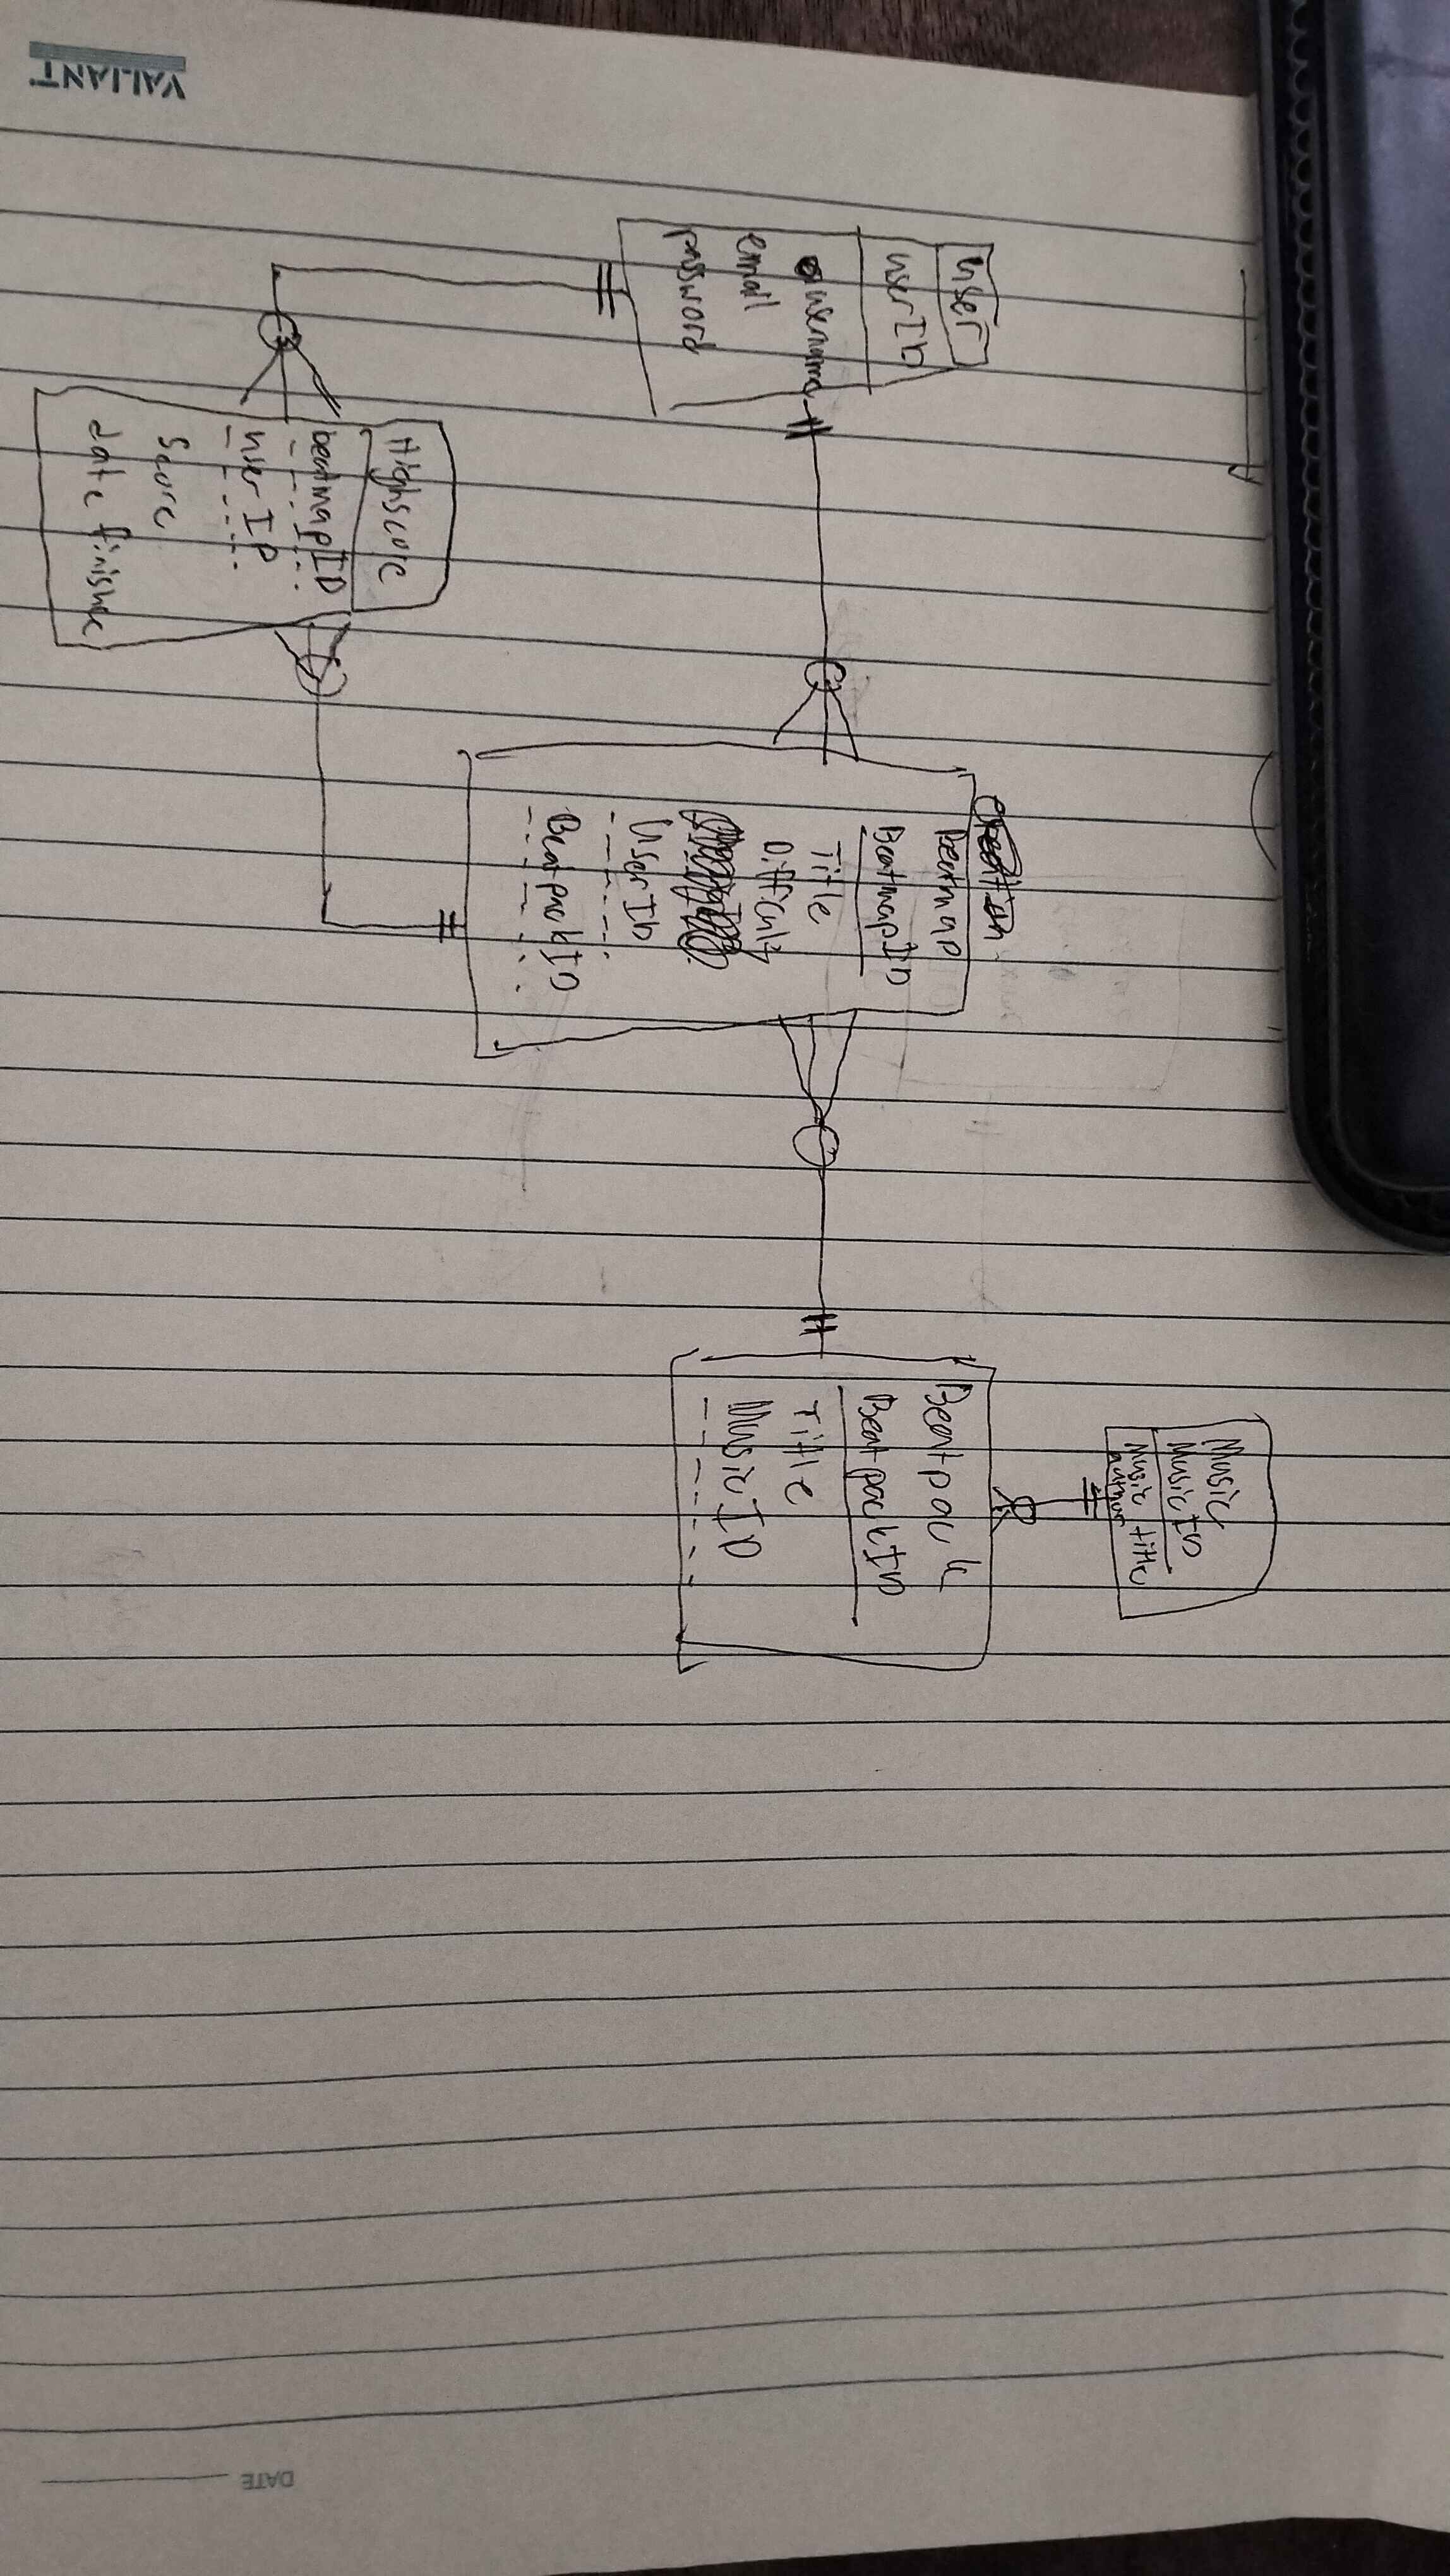 Music
MusicID
Music title
author
user
userID
username
email
password
Beatmap
BeatmapID
Title
Difficulty
UserID
BeatpackID
Beatpack
BeatpackID
Title
MusicID
Highscore
beatmapID
userID
Score
date finishe
DATE
VALIANT